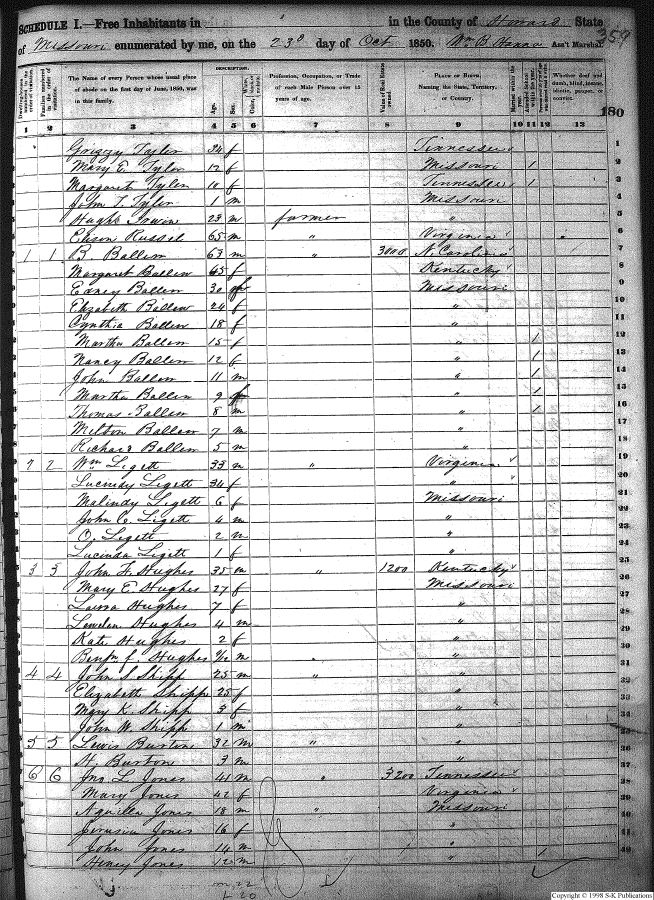 SCHEDULE I.—Free Inhabitants in in the County of Howard State
of Missouri enumerated by me, on the 23d day of Oct 1850. Wm B. Ass't Marshal. 359
Dwelling-houses numbered in the order of visitation.
Families numbered in the order of visitation.
The Name of every Person whose usual place of abode on the first day of June, 1850, was in this family.
DESCRIPTION.
Age.
Sex.
Color,
Profession, Occupation, or Trade of each Male Person over 15 years of age.
Value of Real Estate owned.
PLACE OF BIRTH. Naming the State, Territory, or Country.
Married within the year.
Attended School within the year.
Whether deaf and dumb, blind, insane, idiotic, pauper, or convict.
180
1 2 3 4 5 6 7 8 9 10 11 12 13
Tyler 34 f Tinnessee 1
Mary E. Tyler 12 f Missouri 1 2
Margaret Tyler 10 f Tinnessee 1 3
John T. Tyler 1 m Missouri 4
Hugh Irwin 23 m farmer " 5
Russel 65 m " Virginia 6
1 1 B. Ballew 63 m " 3000 N. Carolina 7
Margaret Ballew 45 f Kentucky 8
Edney Ballew 30 f Missouri 9
Elizabeth Ballew 24 f " 10
Cynthia Ballew 18 f " 11
Martha Ballew 15 f " 1 12
Nancy Ballew 12 f " 1 13
John Ballew 11 m " 1 14
Martha Ballew 9 f " 1 15
Thomas Ballew 8 m " 1 16
Milton Ballew 7 m " 17
Richard Ballew 5 m " 18
2 2 Wm Ligett 33 m " Virginia 19
Lucindy Ligett 34 f " 20
Malindy Ligett 6 f Missouri 21
John C. Ligett 4 m " 22
O. Ligett 2 m " 23
Lucinda Ligett 1 f " 24
3 3 John F. Hughes 35 m " 1200 Kentucky 25
Mary E. Hughes 27 f Missouri 26
Laura Hughes 7 f " 27
Hughes 4 m " 28
Kate Hughes 2 f " 29
Benjm f. Hughes m " 30
4 4 John S. Skipp 25 m " " 31
Elizabeth Skipp 25 f " 32
Mary K. Skipp 3 f " 33
John W. Skipp 1 m " 34
5 5 Lewis Burton 32 m " " 35
H. Burton 3 m " 36
6 6 Jno. L. Jones 41 m " 3200 Tinnessee 37
Mary Jones 42 f Virginia 38
Aquilla Jones 18 m " Missouri 39
Jones 16 f " 40
John Jones 14 m " 1 41
Henry Jones 12 m " 42
m 22
f 20
Copyright © 1998 S-K Publications